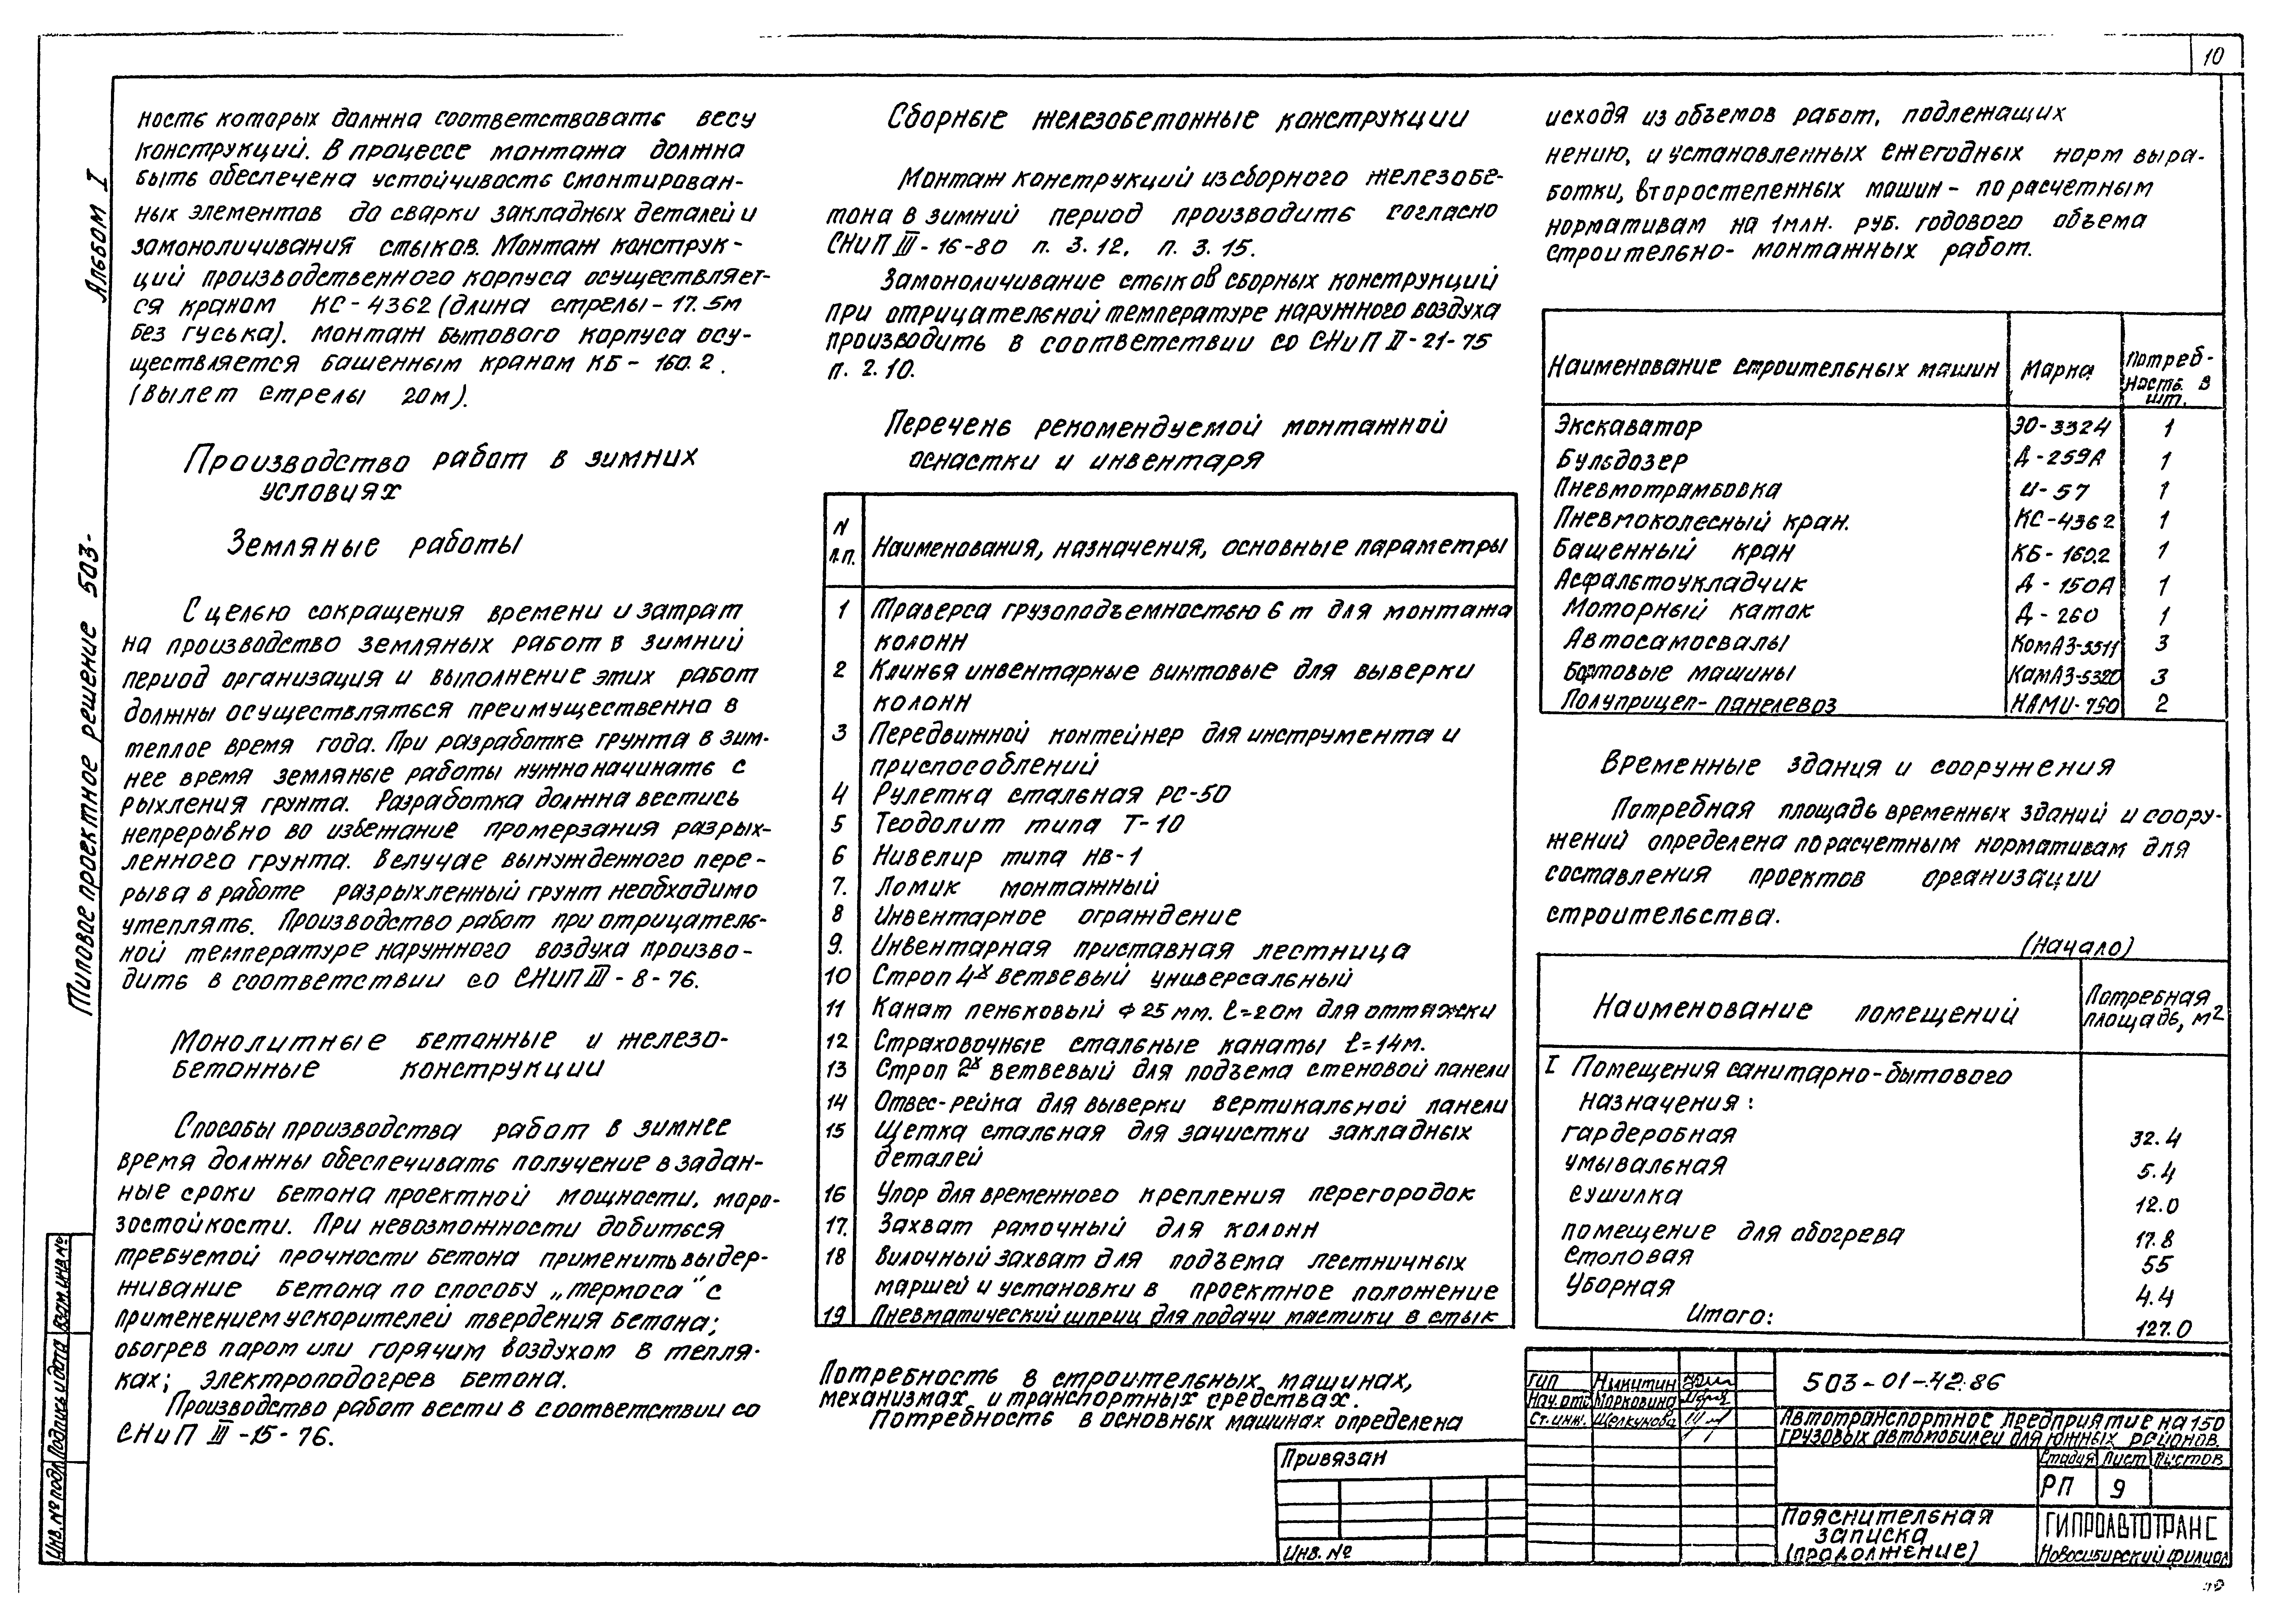 10
Альбом I
Типовое проектное решение 503-
ность которых должна соответствовать весу
конструкций. В процессе монтажа должна
быть обеспечена устойчивость смонтирован-
ных элементов до сварки закладных деталей и
замоноличивания стыков. Монтаж конструк-
ций производственного корпуса осуществляет-
ся краном КС-4362 (длина стрелы - 17.5м
без гуська). Монтаж бытового корпуса осу-
ществляется башенным краном КБ - 160.2.
(Вылет стрелы 20м).
Производство работ в зимних
условиях
Земляные работы
С целью сокращения времени и затрат
на производство земляных работ в зимний
период организация и выполнение этих работ
должны осуществляться преимущественно в
теплое время года. При разработке грунта в зим-
нее время земляные работы нужно начинать с
рыхления грунта. Разработка должна вестись
непрерывно во избежание промерзания разрых-
ленного грунта. В случае вынужденного пере-
рыва в работе разрыхленный грунт необходимо
утеплять. Производство работ при отрицатель-
ной температуре наружного воздуха произво-
дить в соответствии со СНиП III - 8 - 76.
Монолитные бетонные и железо-
бетонные конструкции
Способы производства работ в зимнее
время должны обеспечивать получение в задан-
ные сроки бетона проектной мощности, моро-
зостойкости. При невозможности добиться
требуемой прочности бетона применить выдер-
живание бетона по способу „термоса" с
применением ускорителей твердения бетона;
обогрев паром или горячим воздухом в тепля-
ках; электроподогрев бетона.
Производство работ вести в соответствии со
СНиП III - 15 - 76.
Сборные железобетонные конструкции
Монтаж конструкций из сборного железобе-
тона в зимний период производить согласно
СНиП III - 16-80 п. 3.12, п. 3.15.
Замоноличивание стыков сборных конструкций
при отрицательной температуре наружного воздуха
производить в соответствии со СНиП II - 21 - 75
п. 2.10.
Перечень рекомендуемой монтажной
оснастки и инвентаря
N п.п. Наименования, назначения, основные параметры
1 Траверса грузоподъемностью 6 т для монтажа
колонн
2 Клинья инвентарные винтовые для выверки
колонн
3 Передвижной контейнер для инструмента и
приспособлений
4 Рулетка стальная РС-50
5 Теодолит типа Т-10
6 Нивелир типа НВ-1
7. Ломик монтажный
8 Инвентарное ограждение
9. Инвентарная приставная лестница
10 Строп 4х ветвевый универсальный
11 Канат пеньковый ф 25 мм. ℓ=20м для оттяжски
12 Страховочные стальные канаты ℓ=14м.
13 Строп 2х ветвевый для подъема стеновой панели
14 Отвес-рейка для выверки вертикальной панели
15 Щетка стальная для зачистки закладных
деталей
16 Упор для временного крепления перегородок
17. Захват рамочный для колонн
18 Вилочный захват для подъема лестничных
маршей и установки в проектное положение
19 Пневматический шприц для подачи мастики в стык
Потребность в строительных машинах,
механизмах и транспортных средствах.
Потребность в основных машинах определена
исходя из объемов работ, подлежащих
нению, и установленных ежегодных норм выра-
ботки, второстепенных машин - по расчетным
нормативам на 1млн. руб. годового объема
строительно- монтажных работ.
Наименование строительных машин Марка Потреб-
ность в
шт.
Экскаватор ЭО-3324 1
Бульдозер Д-259А 1
Пневмотрамбовка И-57 1
Пневмоколесный кран. КС-4362 1
Башенный кран КБ-160.2 1
Асфальтоукладчик Д-150А 1
Моторный каток Д-260 1
Автосамосвалы КомАЗ-5511 3
Бортовые машины КамАЗ-5320 3
Полуприцеп- панелевоз НАМИ-790 2
Временные здания и сооружения
Потребная площадь временных зданий и соору-
жений определена по расчетным нормативам для
составления проектов организации
строительства.
(Начало)
Наименование помещений Потребная
площадь, м2
I Помещения санитарно-бытового
назначения:
гардеробная 32.4
умывальная 5.4
сушилка 12.0
помещение для обогрева 17.8
столовая 55
уборная 4.4
Итого: 127.0
ГИП Никитин
Нач. отд Морковина
Ст. инж. Щелкунова
503-01-42.86
Автотранспортное предприятие на 150
грузовых автомобилей для южных районов.
Стадия Лист Листов
РП 9
Пояснительная
записка
(продолжение)
ГИПРОАВТОТРАНС
Новосибирский филиал
Привязан
Инв. №
Инв. № подл. Подпись и дата Взам. инв. №